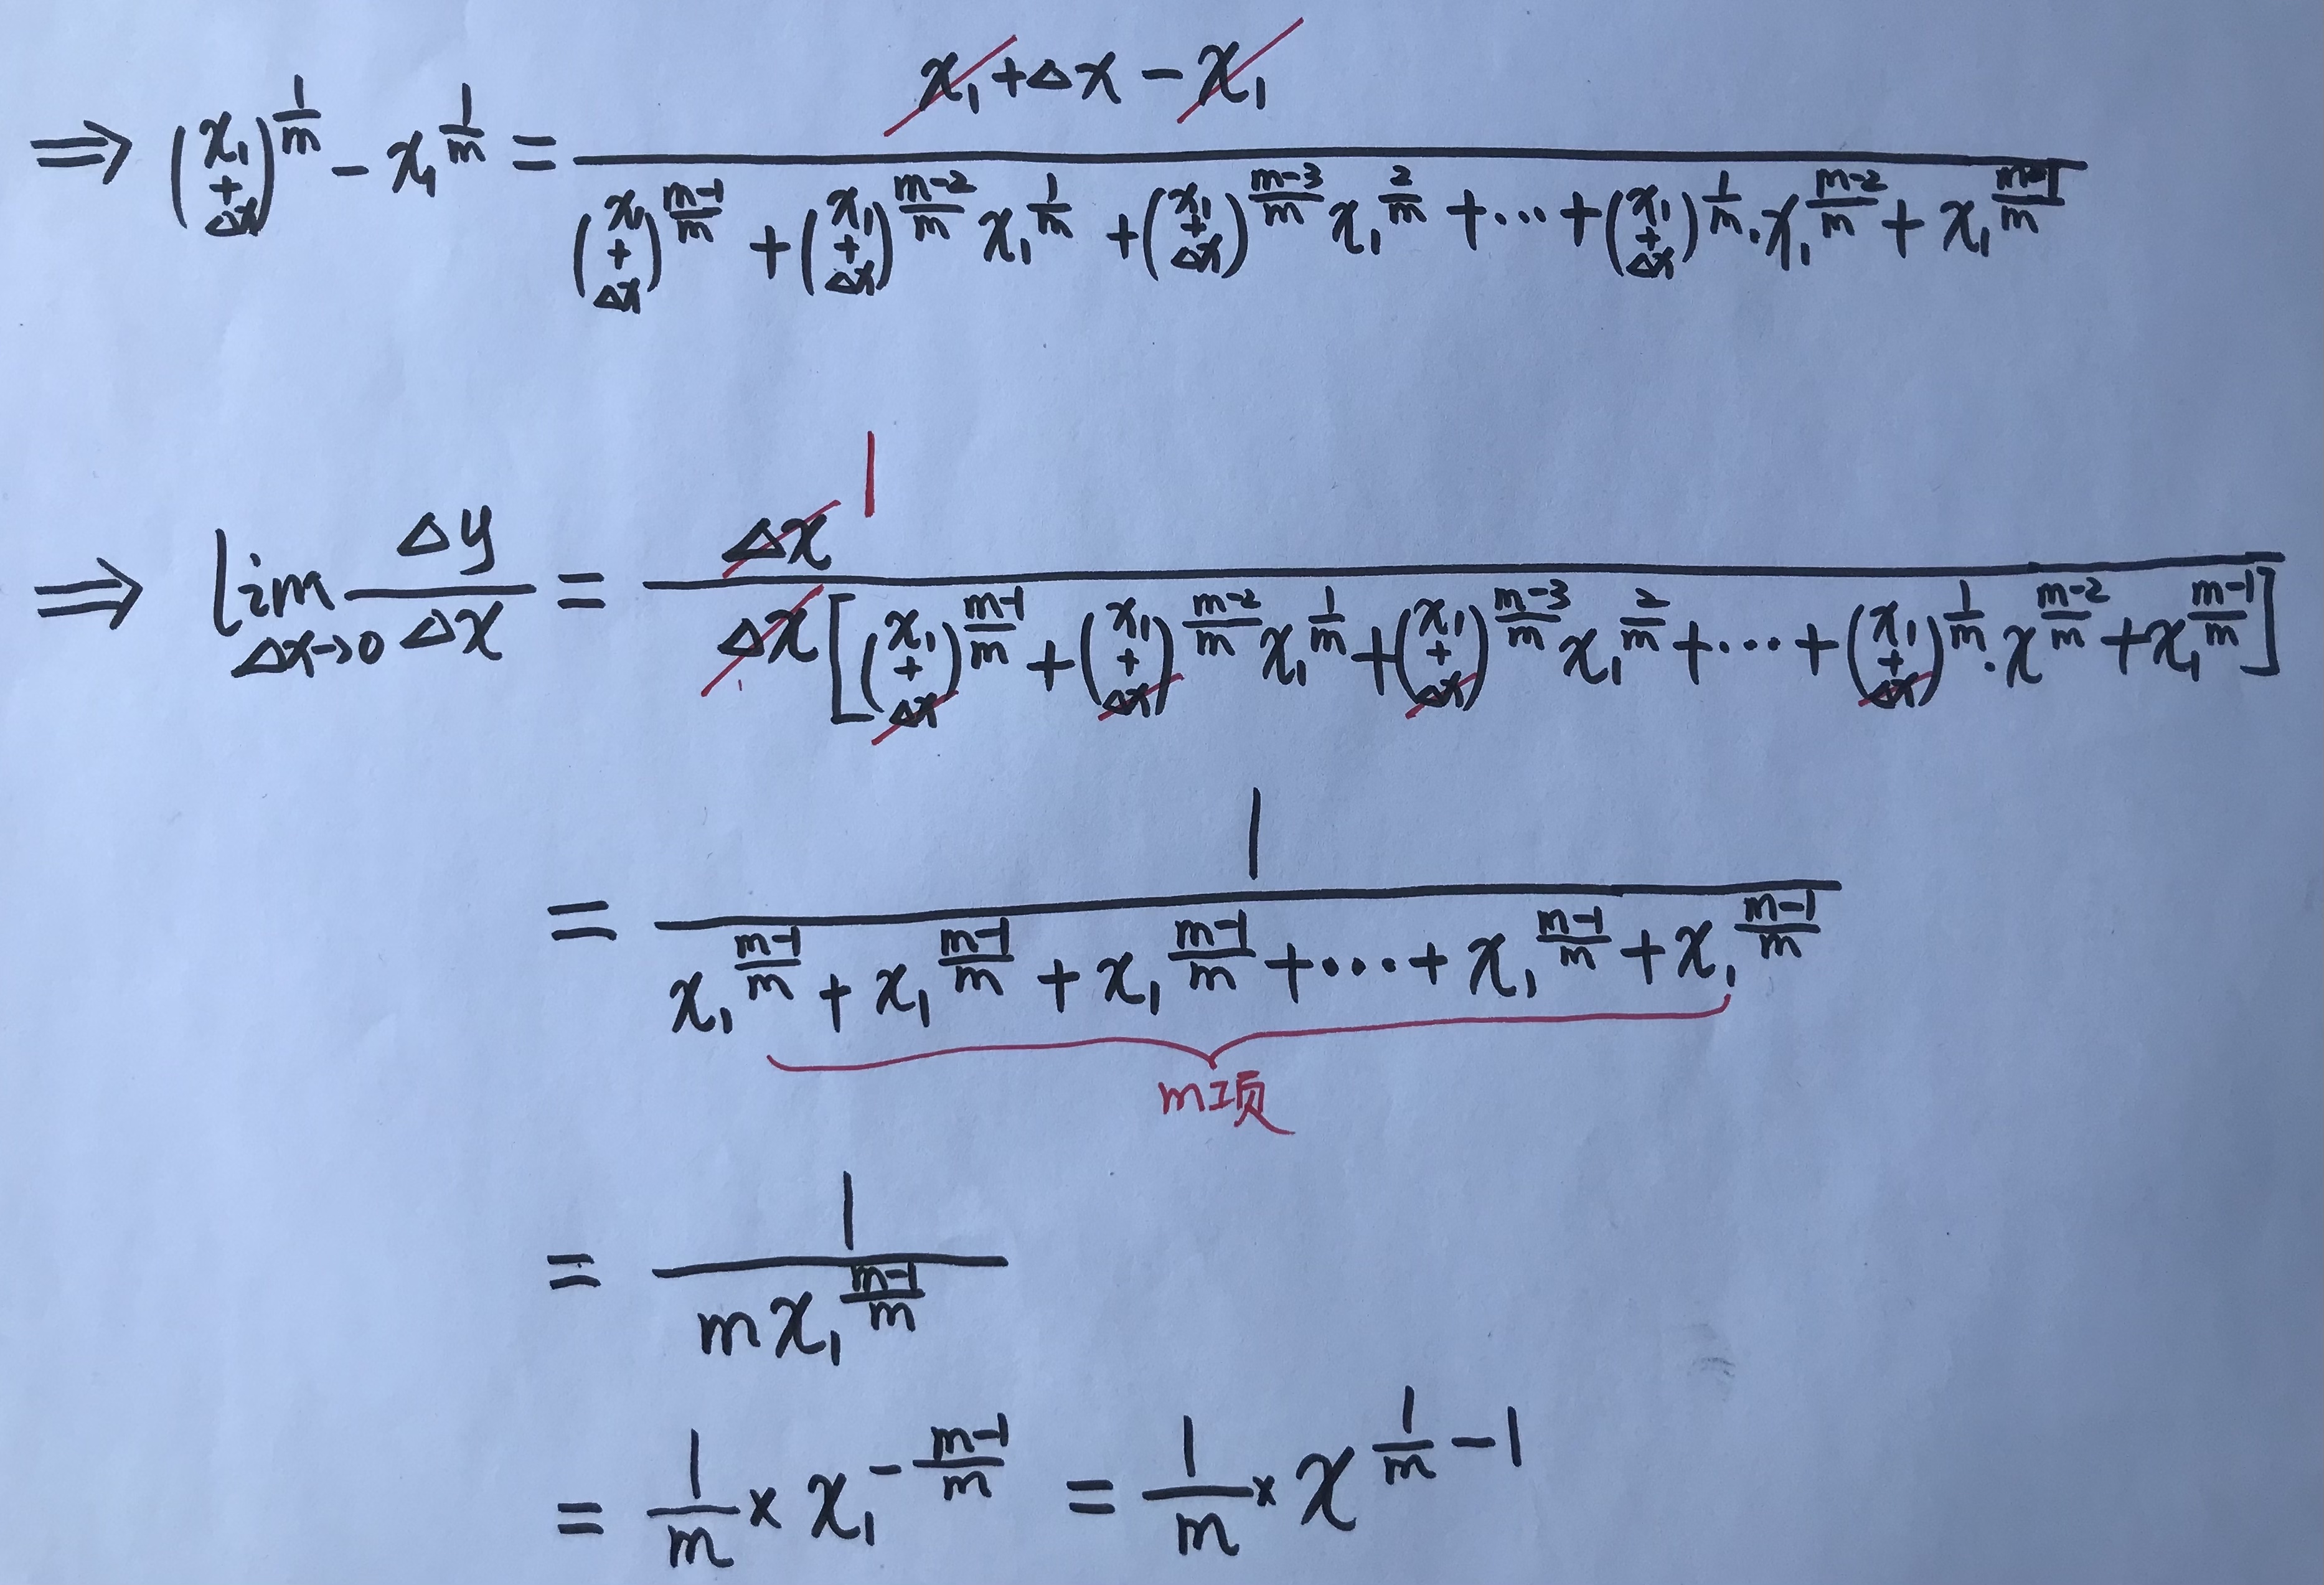 ⇒ (x₁+Δx)^{1/m} - x₁^{1/m} = \frac{x₁+Δx-x₁}{(x₁+Δx)^{\frac{m-1}{m}} + (x₁+Δx)^{\frac{m-2}{m}} x₁^{\frac{1}{m}} + (x₁+Δx)^{\frac{m-3}{m}} x₁^{\frac{2}{m}} + ... + (x₁+Δx)^{\frac{1}{m}} · x₁^{\frac{m-2}{m}} + x₁^{\frac{m-1}{m}}}
1
⇒ lim_{Δx→0} \frac{Δy}{Δx} = \frac{Δx}{Δx[(x₁+Δx)^{\frac{m-1}{m}} + (x₁+Δx)^{\frac{m-2}{m}} x₁^{\frac{1}{m}} + (x₁+Δx)^{\frac{m-3}{m}} x₁^{\frac{2}{m}} + ... + (x₁+Δx)^{\frac{1}{m}} · x^{\frac{m-2}{m}} + x₁^{\frac{m-1}{m}}]}
= \frac{1}{x₁^{\frac{m-1}{m}} + x₁^{\frac{m-1}{m}} + x₁^{\frac{m-1}{m}} + ... + x₁^{\frac{m-1}{m}} + x₁^{\frac{m-1}{m}}}
m项
= \frac{1}{m x₁^{\frac{m-1}{m}}}
= \frac{1}{m} × x₁^{-\frac{m-1}{m}} = \frac{1}{m} × x^{\frac{1}{m}-1}